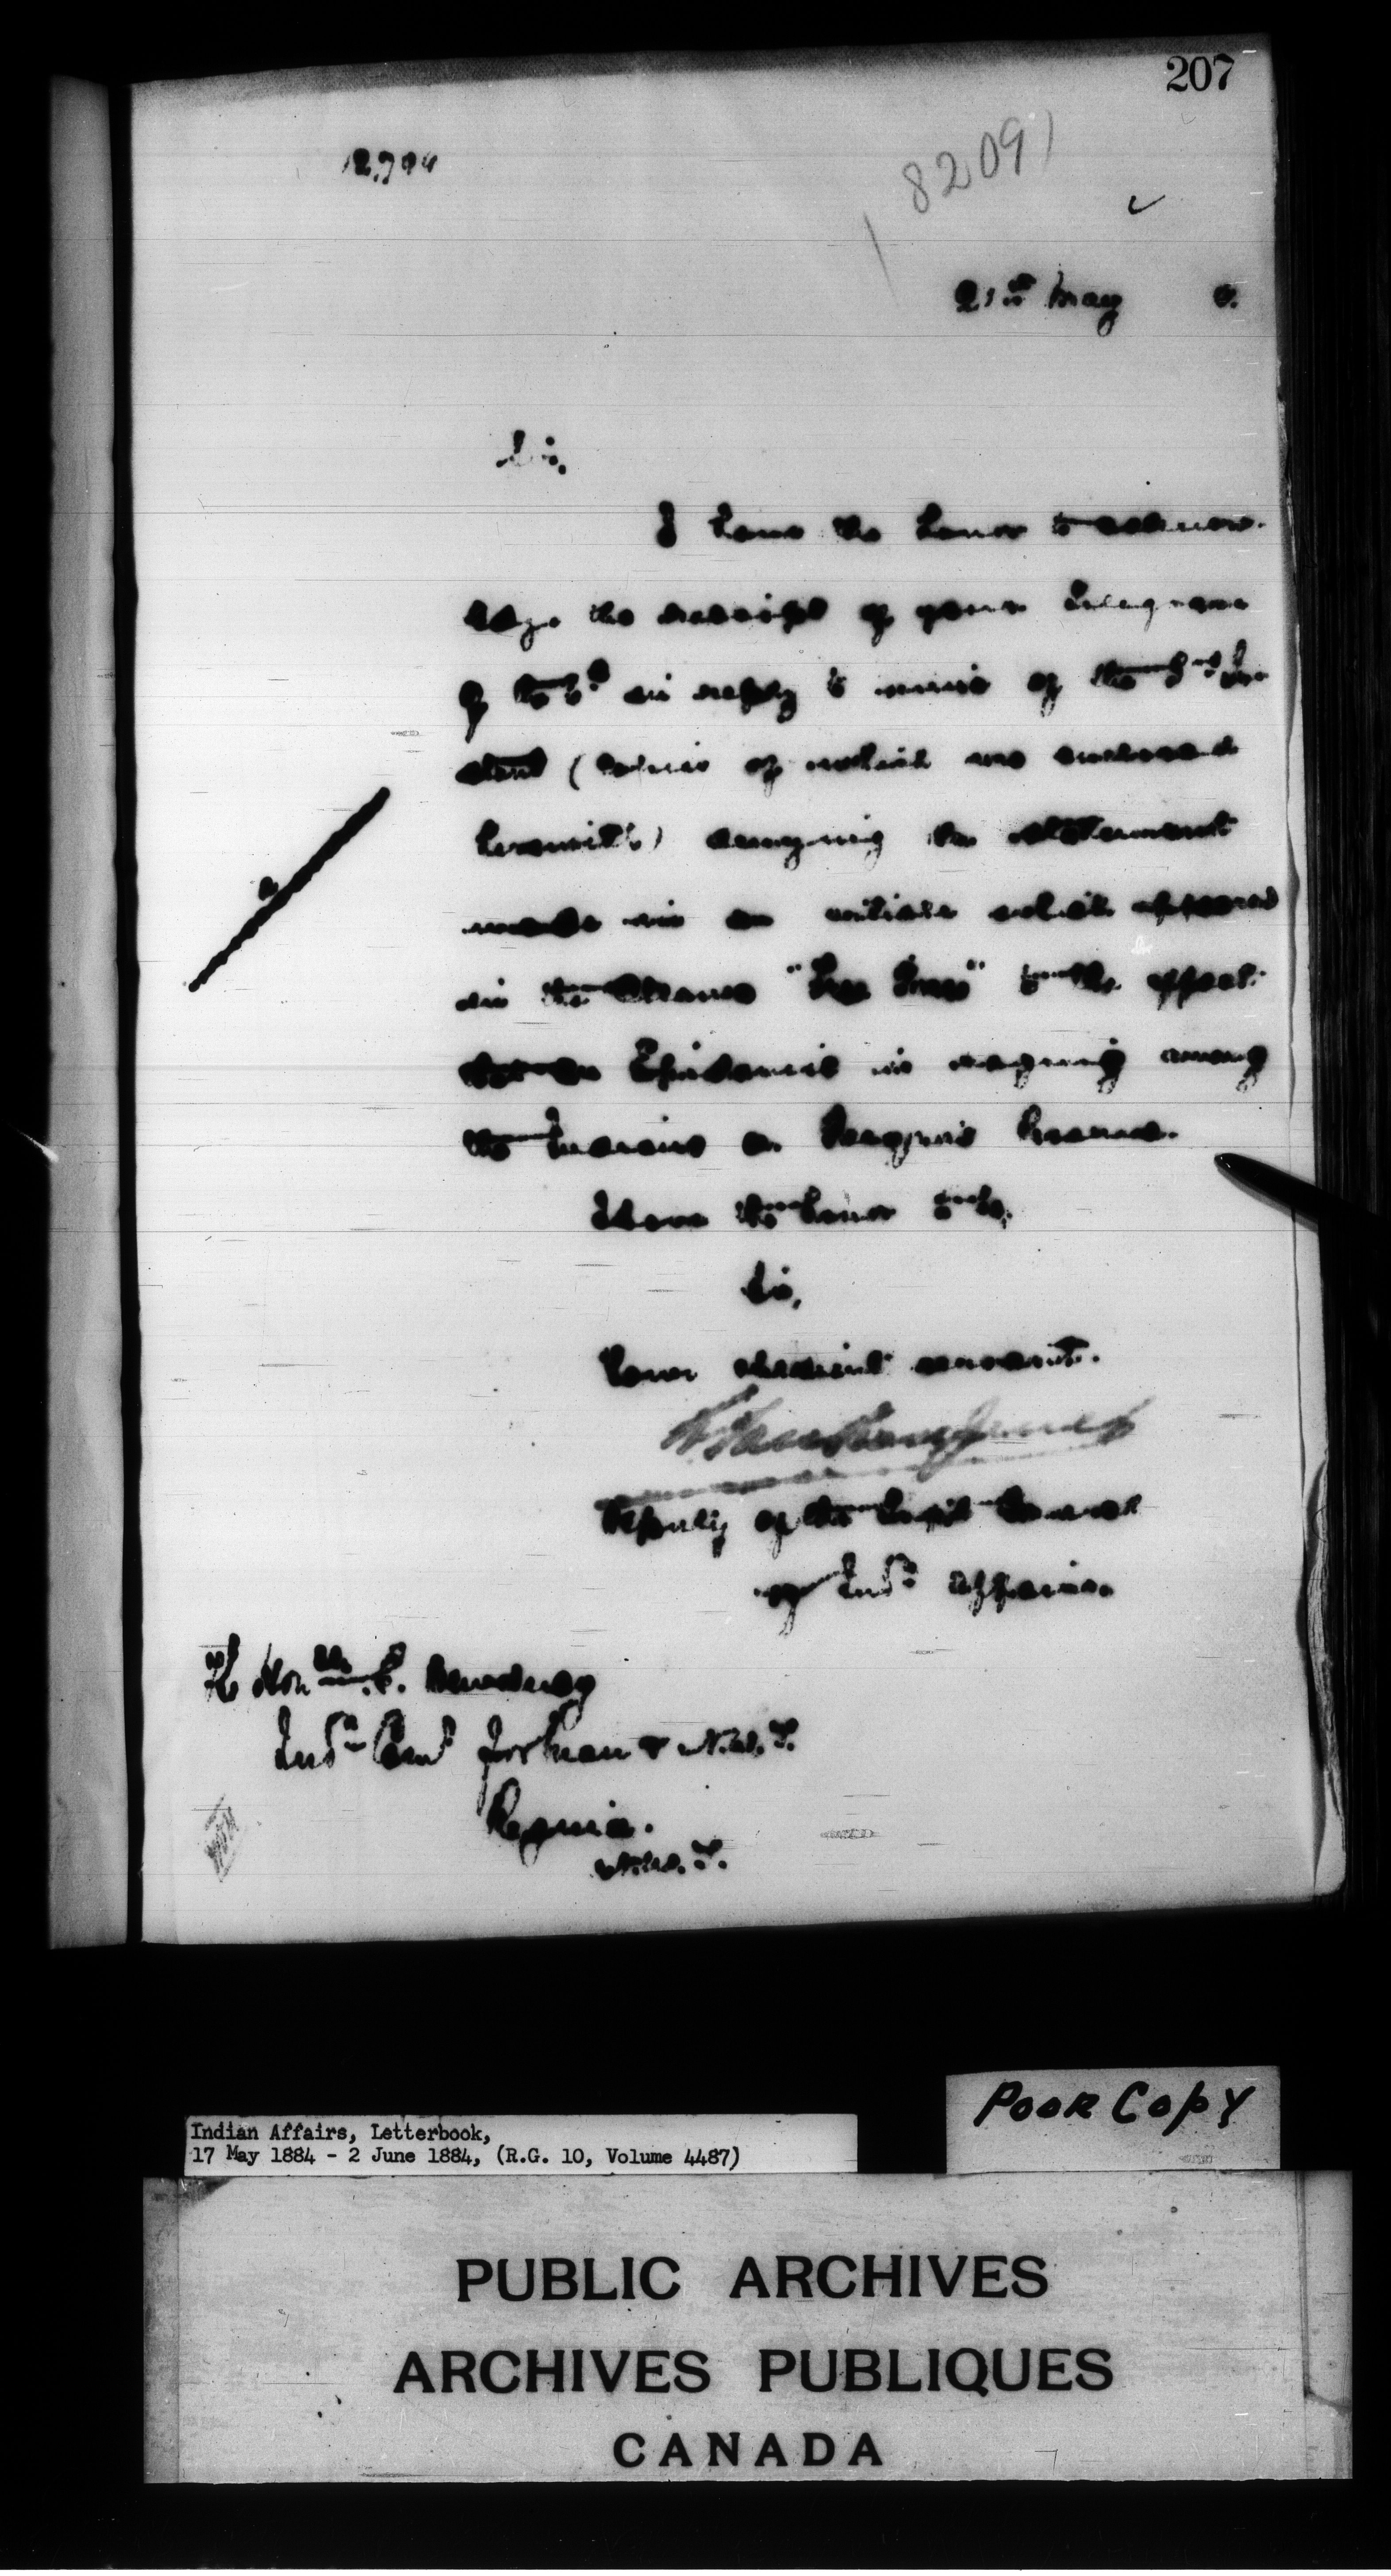 207
12,794
82091
21st May
Sir,
I have the honor to acknow-
ledge the receipt of your Telegram
of the in reply to mine of the
(copies of which are enclosed
herewith) denying the statement
made in an article which appeared
in the Ottawa "Free Press" to the effect
Epidemic is raging among
the Indians on Reserve.
I have the honor to be,
Sir,
Your obedient servant.
L. VanKoughnet
Deputy of the Supt General
of Indn Affairs.
The Hon E. Dewdney
Indn Comr for Man & N.W.T.
Regina.
N.W.T.
Poor Copy
Indian Affairs, Letterbook,
17 May 1884 - 2 June 1884, (R.G. 10, Volume 4487)
PUBLIC ARCHIVES
ARCHIVES PUBLIQUES
CANADA